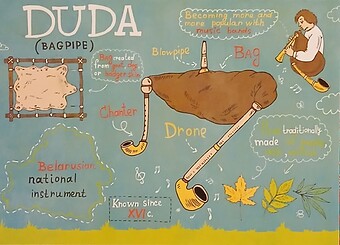 DUDA
(BAGPIPE)
Becoming more and
more popular with
music bands
Blowpipe
Bag
Bag created
from goat, dog
or badger skin
Chanter
Drone
traditionally
made
Belarusian
national
instrument
Known since
XVI c.